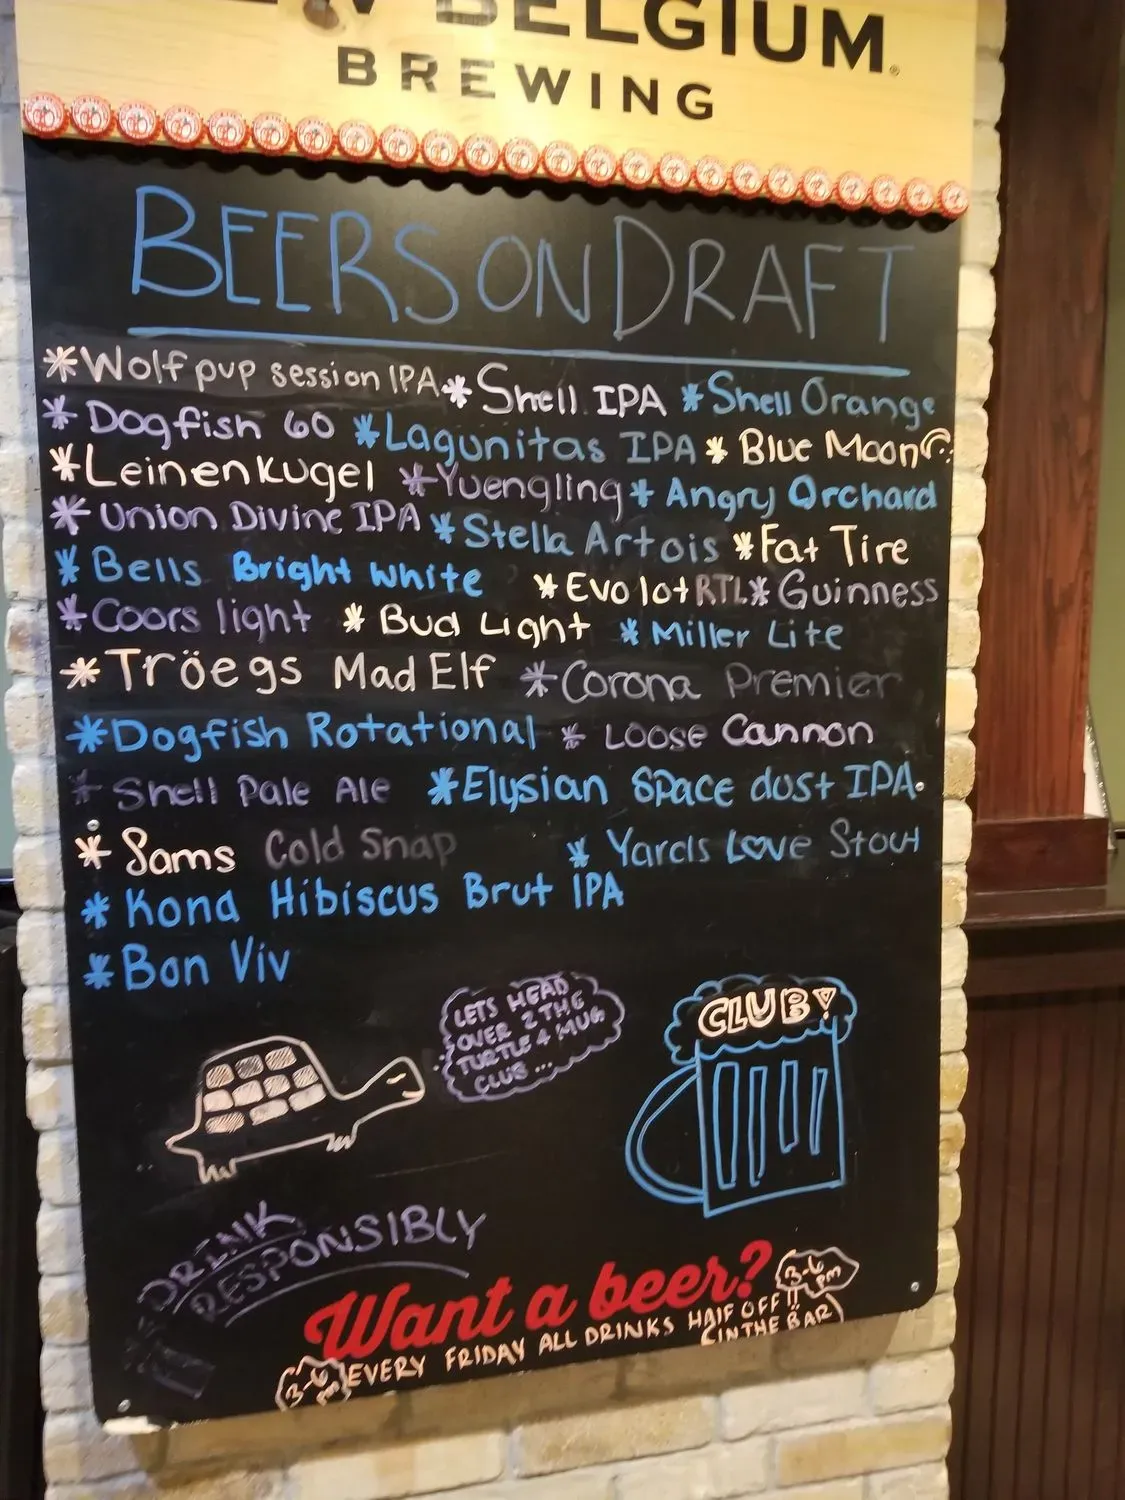 BELGIUM
BREWING
BEERS ON DRAFT
*Wolf pup session IPA *Shell IPA *Shell Orange
*Dogfish 60 *Lagunitas IPA *Blue Moon
*Leinenkugel *Yuengling *Angry Orchard
*Union Divine IPA *Stella Artois *Fat Tire
*Bells Bright White *Evo lot RTL *Guinness
*Coors light *Bud Light *Miller Lite
*Tröegs Mad Elf *Corona Premier
*Dogfish Rotational *Loose Cannon
*Shell Pale Ale *Elysian Space dust IPA.
*Sams Cold Snap *Yards Love Stout
*Kona Hibiscus Brut IPA
*Bon Viv
LETS HEAD
OVER 2 THE
TURTLE 4 MUG
CLUB...
CLUB!
DRINK
RESPONSIBLY
Want a beer?
3-6 pm
3-6 pm
EVERY FRIDAY ALL DRINKS HALF OFF!!
IN THE BAR